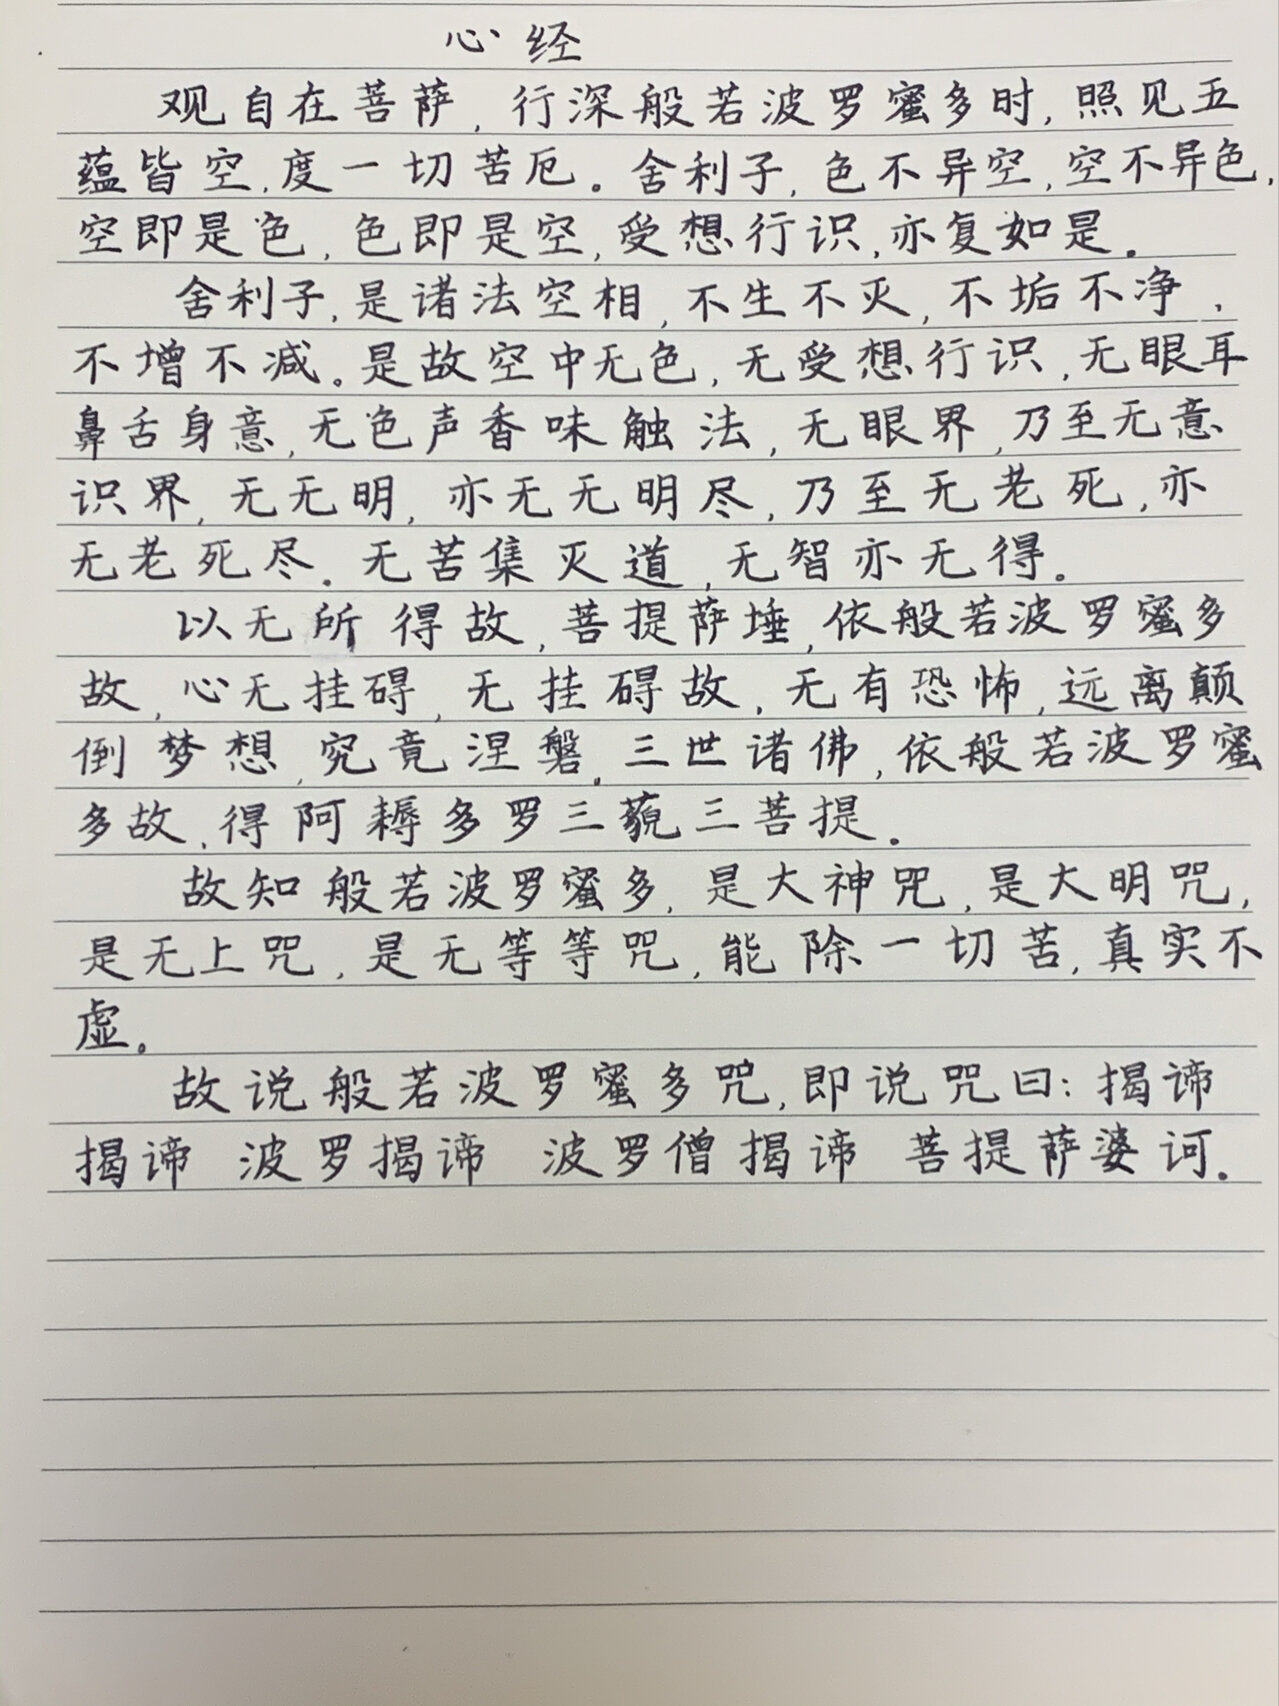 心经
观自在菩萨,行深般若波罗蜜多时,照见五
蕴皆空,度一切苦厄。舍利子,色不异空,空不异色,
空即是色,色即是空,受想行识,亦复如是。
舍利子,是诸法空相,不生不灭,不垢不净,
不增不减。是故空中无色,无受想行识,无眼耳
鼻舌身意,无色声香味触法,无眼界,乃至无意
识界,无无明,亦无无明尽,乃至无老死,亦
无老死尽。无苦集灭道,无智亦无得。
以无所得故,菩提萨埵,依般若波罗蜜多
故,心无挂碍,无挂碍故,无有恐怖,远离颠
倒梦想,究竟涅磐。三世诸佛,依般若波罗蜜
多故,得阿耨多罗三藐三菩提。
故知般若波罗蜜多,是大神咒,是大明咒,
是无上咒,是无等等咒,能除一切苦,真实不
虚。
故说般若波罗蜜多咒,即说咒曰:揭谛
揭谛 波罗揭谛 波罗僧揭谛 菩提萨婆诃。